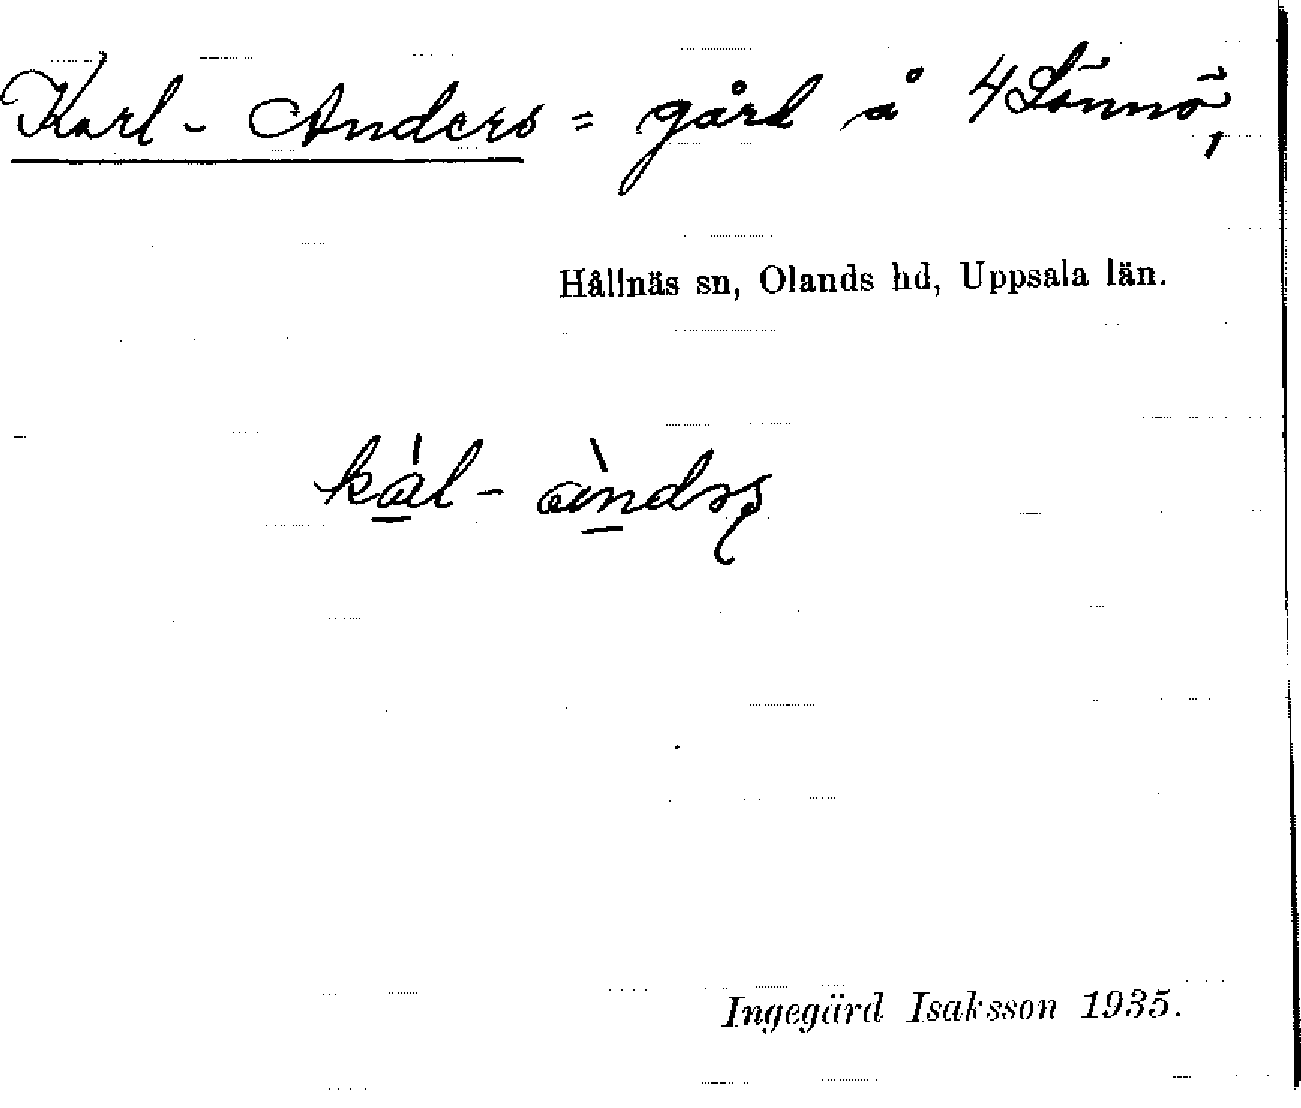 Karl-Anders = gård å 4 Lönnö,
Hållnäs sn, Olands hd, Uppsala län.
kál - àndrs
Ingegärd Isaksson 1935.